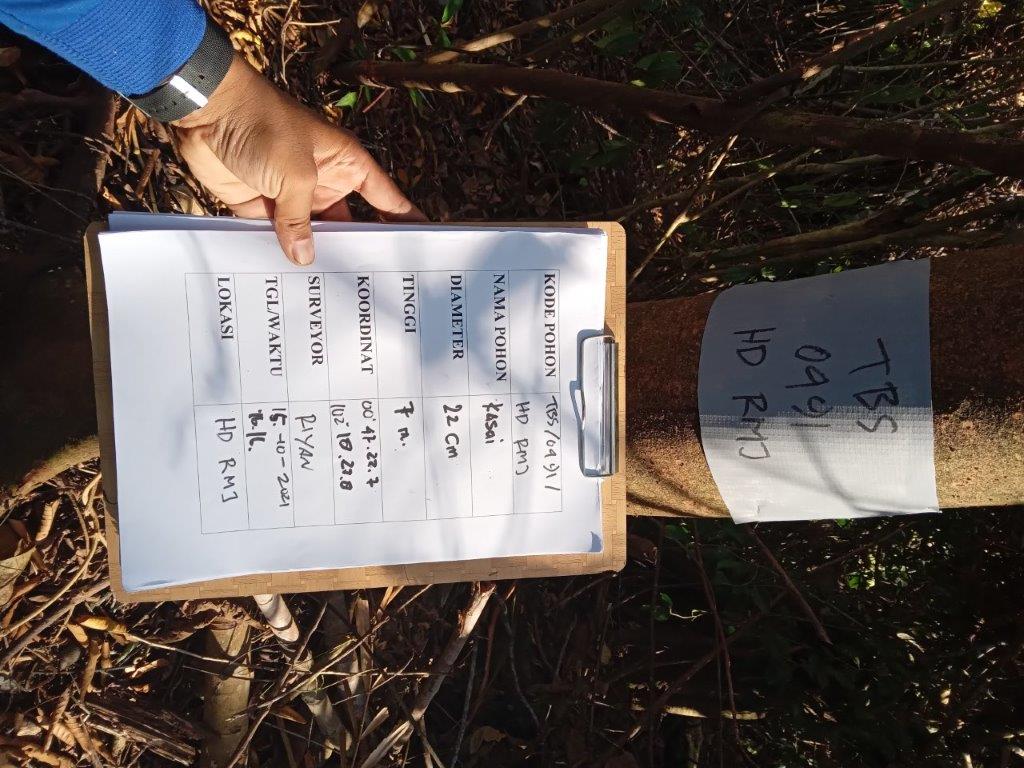 TBS
0991
HD RMJ
KODE POHON TBS/0991/
HD RMJ
NAMA POHON Kasai
DIAMETER 22 Cm
TINGGI 7 m.
KOORDINAT 00°47.22.7
102°18.23.8
SURVEYOR RIYAN
TGL/WAKTU 15-10-2021
LOKASI HD RMJ